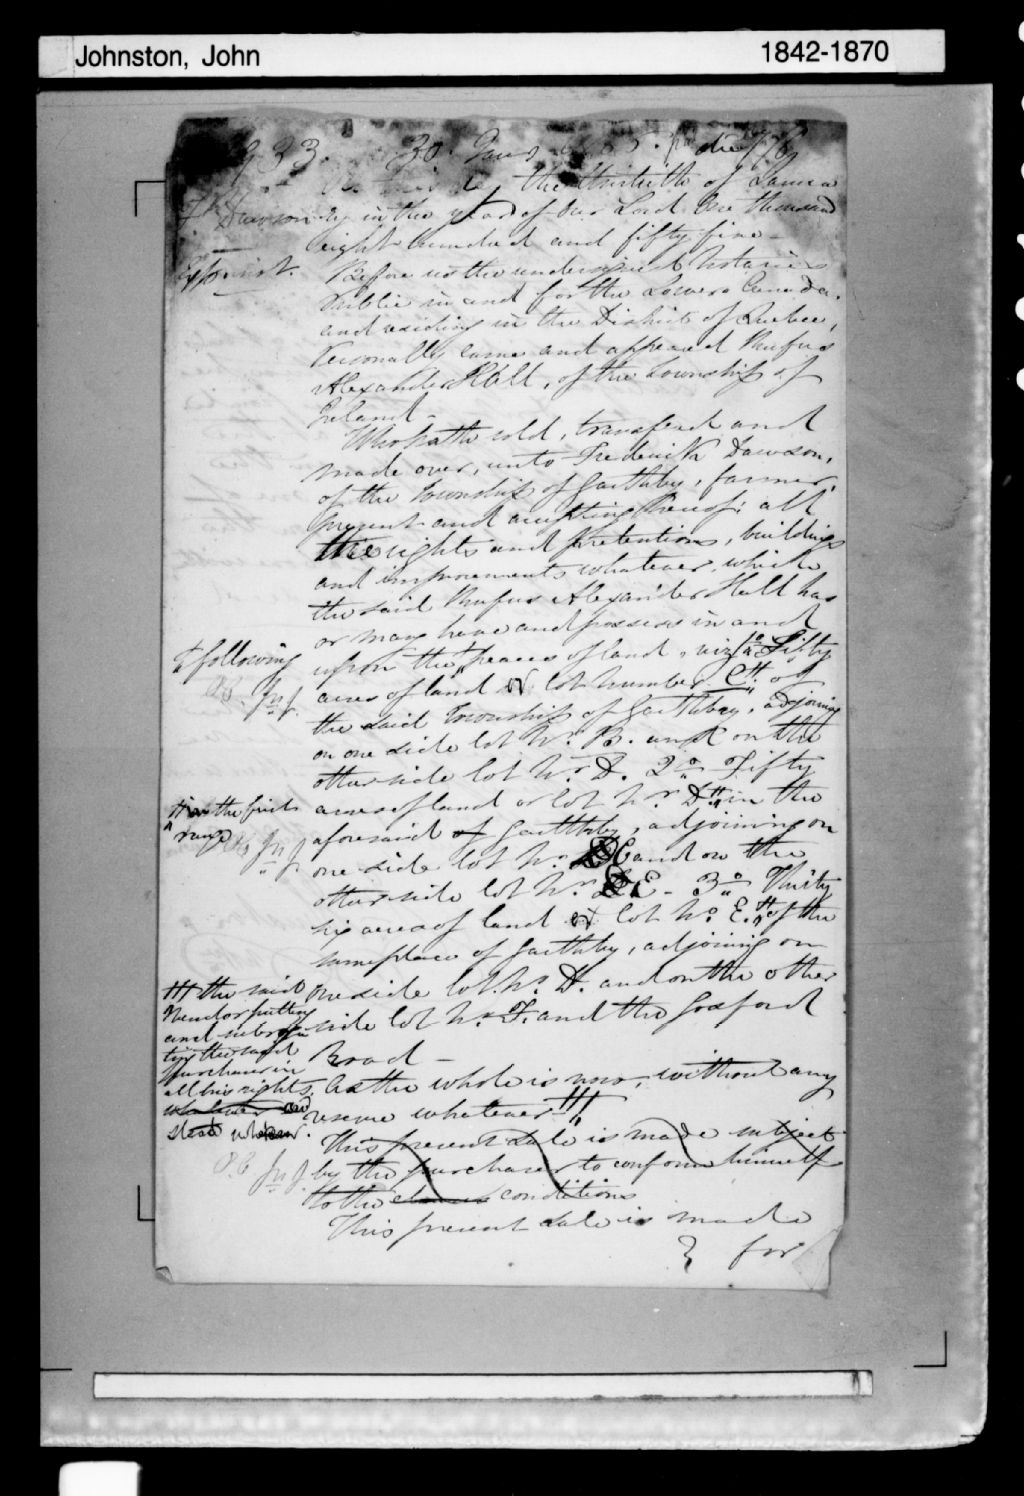 Johnston, John
1842-1870
933. 30. 
On this day the thirtieth of Janua
Dawson ry in the year of Our Lord One thousand
eight hundred and fifty five -
Before us the undersigned Notaries
Public in and for the Lower Canada,
and residing in the District of Quebec,
Personally came and appeared Rufus
Alexander Hall, of the Township of
Ireland -
Who hath sold, transfered and
made over, unto Frederick Dawson,
of the Township of Garthby, farmer,
present and accepting thereof: all
the rights and pretentions, buildings
and improvements whatever, which
the said Rufus Alexander Hall has
or may have and possess in and
following
upon the peaces of land, viz, 1o Fifty
acres of land of lot number C. of
the said Township of Garthby, adjoining
on one side lot No. B. and on the
other side lot No. D. 2o Fifty
in the first
acres of land or lot No. D in the
range
aforesaid of Garthby, adjoining on
one side lot No. C and on the
other side lot No. E - 3o Thirty
six acres of land of lot No. E. of the
same place of Garthby, adjoining on
the said
one side lot No. D. and on the other
Vendor putting
side lot No. F. and the Gosford
and subroga
ting the said
Road -
purchaser in
all his rights.
As the whole is now, without any
reserve whatever
This present Sale is made subject
by the purchaser to conform himself
to the clauses conditions
This present Sale is made
for